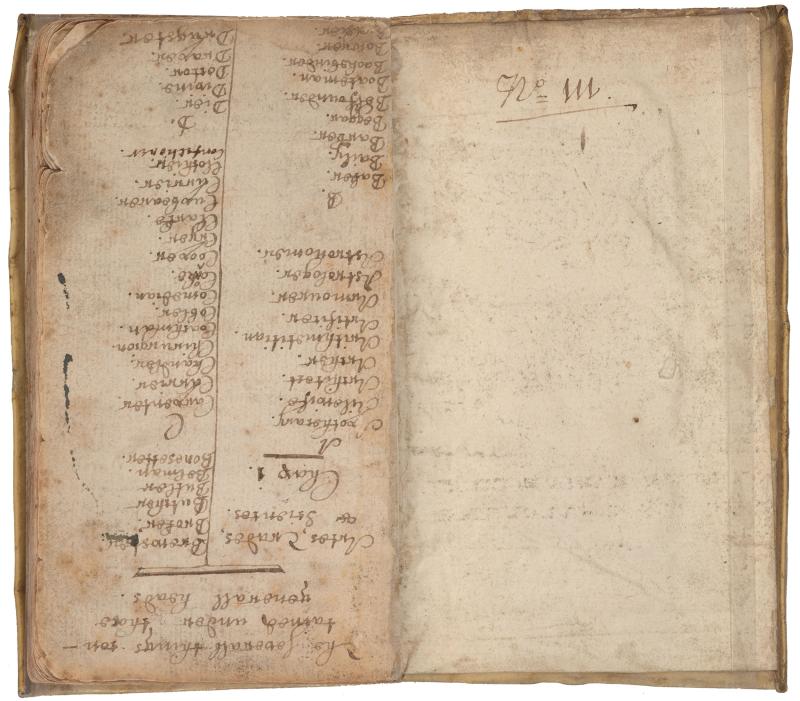 The severall things con-
tained under these
generall heads.
Artes, Trades,
& Scientes.
Chap 1.
A
Apothecary.
Alewife.
Architect.
Archer.
Arithmetitian.
Artificer.
Armourer.
Astrologer.
Astronomer.
B.
Baker.
Baily.
Barber.
Beggar.
Belfounder.
Boateman.
Bookebinder.
Bowyer.
Brewster.
Broker.
Butcher
Butler
Belman.
Bonesetter.
C
Carpenter.
Carrier.
Chandler.
Chirurgion.
Coachman.
Cobler.
Comedian.
Cooke.
Cooper.
Cryer.
Clarke.
Cupbearer.
Currier.
Clothier.
Confectioner.
D.
Dier.
Divine.
Doctor.
Draper.
Drugster.
No= 111.